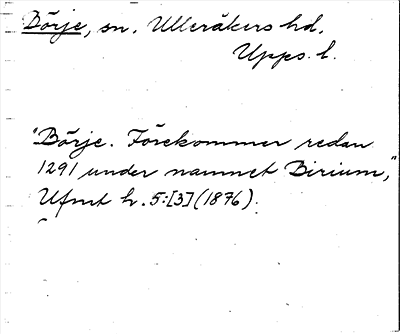 Börje, sn. Ulleråkers hd.
Upps. l.
"Börje. Förekommer redan
1291 under namnet Birium,"
Ufmt h. 5:[3] (1876).